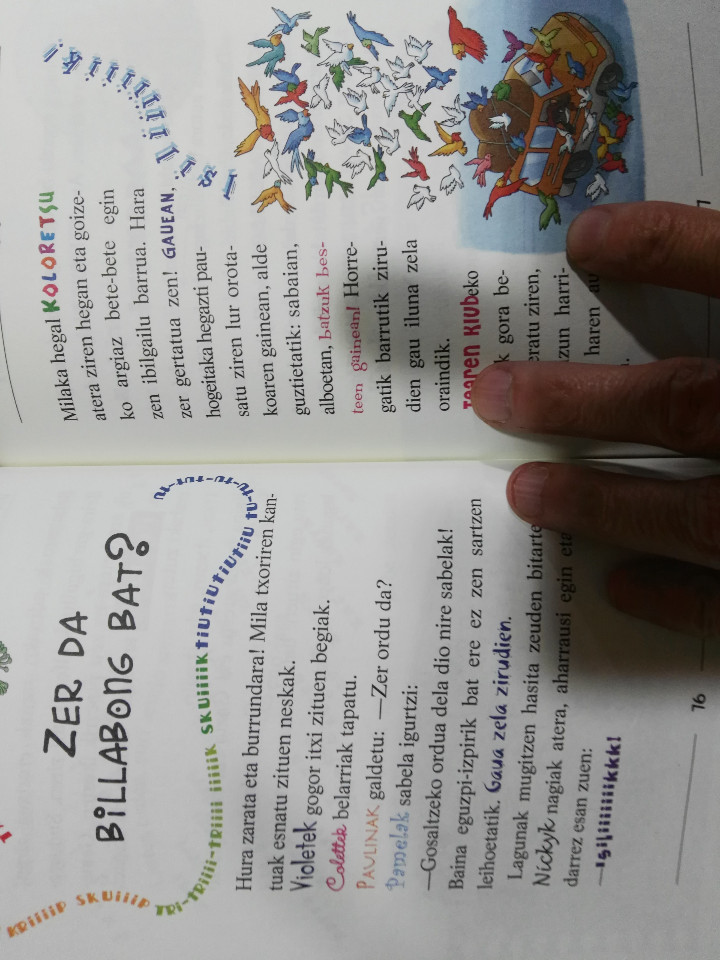 ZER DA
BILLABONG BAT?
KRIIIIP SKUIIIP TRI-TRIIII-TRIIII IIIIIK SKUIIIIK TIUTIUTIUTIUTIIU TU-TU-TUI-TU-TU
Hura zarata eta burrundara! Mila txoriren kan-
tuak esnatu zituen neskak.
Violetek gogor itxi zituen begiak.
Colettek belarriak tapatu.
PAULINAK galdetu: —Zer ordu da?
Pamelak sabela igurtzi:
—Gosaltzeko ordua dela dio nire sabelak!
Baina eguzpi-izpirik bat ere ez zen sartzen
leihoetatik. Gaua zela zirudien.
Lagunak mugitzen hasita zeuden bitarte
Nickyk nagiak atera, aharrausi egin eta
darrez esan zuen:
—Isiliiiiiiiiikkk!
76
Isiliiiiiiiik!
Milaka hegal KOLORETSU
atera ziren hegan eta goize-
ko argiaz bete-bete egin
zen ibilgailu barrua. Hara
zer gertatua zen! GAUEAN,
hogeitaka hegazti pau-
satu ziren lur orota-
koaren gainean, alde
guztietatik: sabaian,
alboetan, batzuk bes-
teen gainean! Horre-
gatik barrutik ziru-
dien gau iluna zela
oraindik.
KLUBeko
gora be-
ratu ziren,
zun harri-
haren